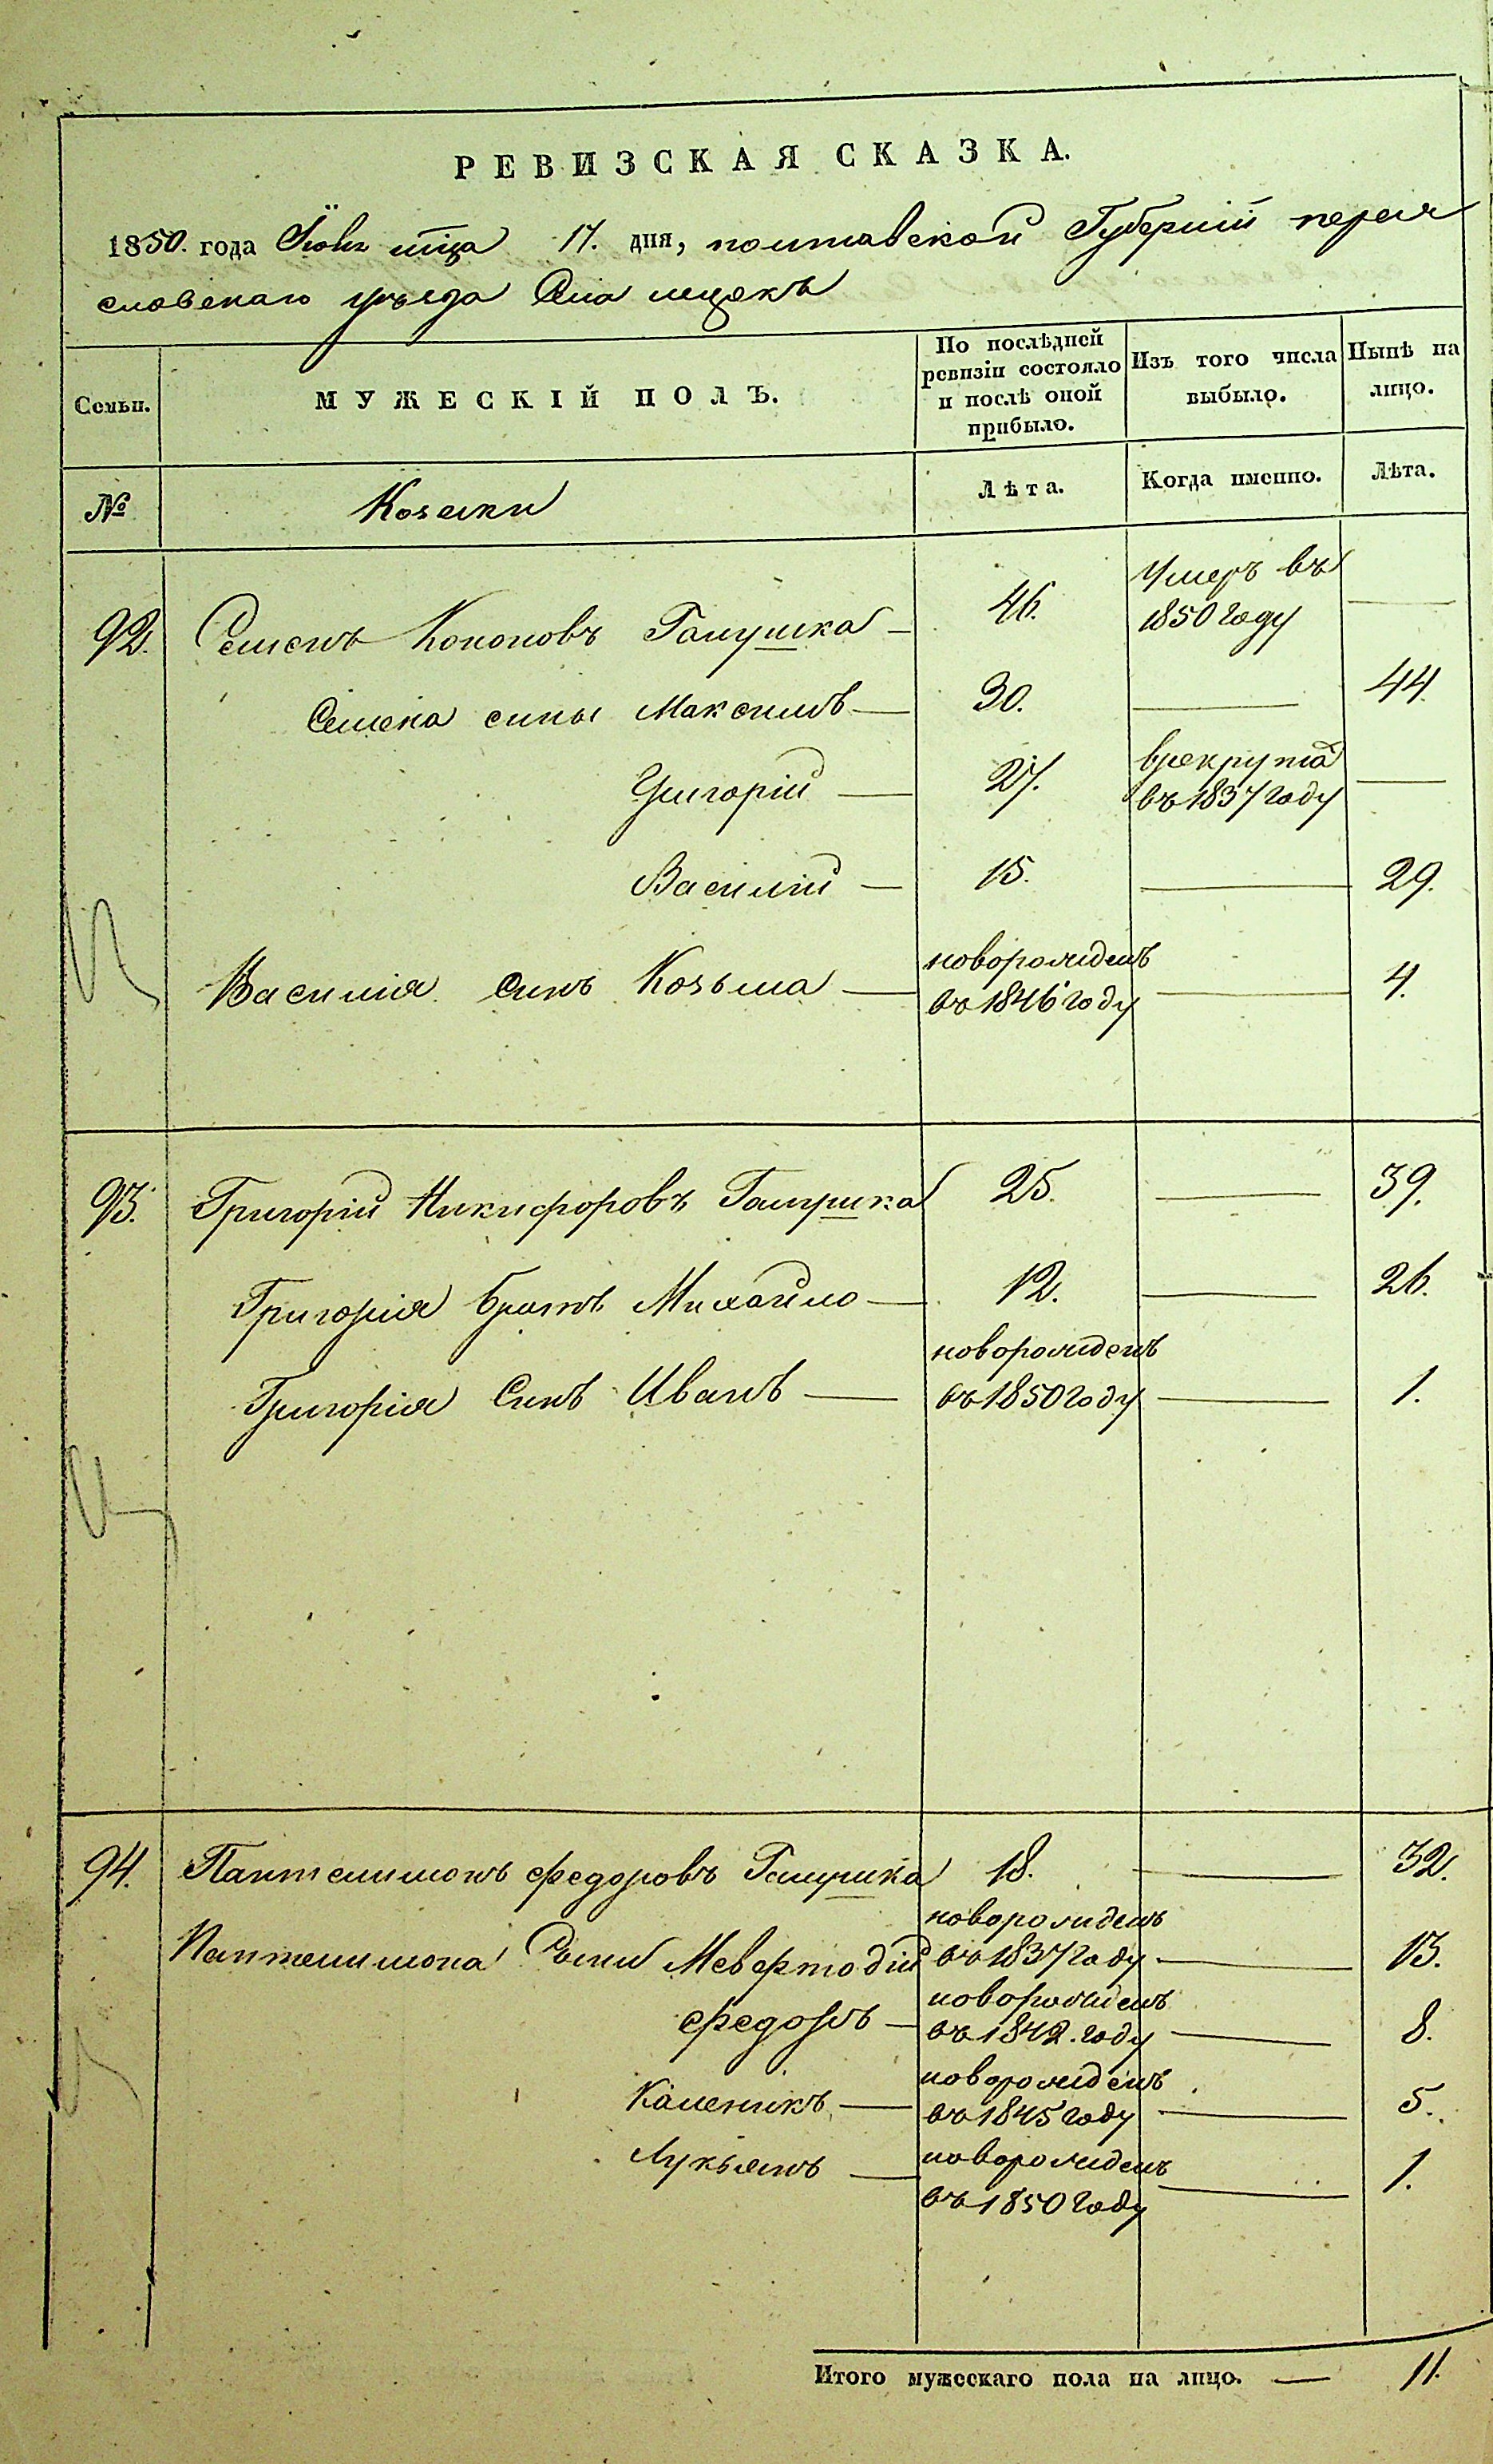 РЕВИЗСКАЯ СКАЗКА.
1850. года Июня мца 17. дня, полтавской Губерніи перея
словскаго уезда Села
Семьи.
МУЖЕСКІЙ ПОЛЪ.
По послѣдней ревизіи состояло и послѣ оной прибыло.
Изъ того числа выбыло.
Нынѣ на лицо.
№
Козаки
Лѣта.
Когда именно.
Лѣта.
92. Семенъ Кононовъ Галушка — 46. Умеръ въ 1850 году —
Семена сины Максимъ — 30. — 44.
Григорій — 27. врекрута въ 1837 году —
Василій — 15. — 29.
Василія синъ Козьма — новорожденъ въ 1846 году — 4.
93. Григорій Никифоровъ Галушка 25. — 39.
Григорія братъ Михайло — 12. — 26.
Григорія Синъ Иванъ — новорожденъ въ 1850 году — 1.
94. Пантелимонъ Федоровъ Галушка 18. — 32.
Пантелимона Сыни Мефтодій новорожденъ въ 1837 году — 13.
Федоръ — новорожденъ въ 1842. году — 8.
Каленикъ — новорожденъ въ 1845 году — 5.
Лукьянъ — новорожденъ въ 1850 году — 1.
Итого мужескаго пола на лицо. — 11.